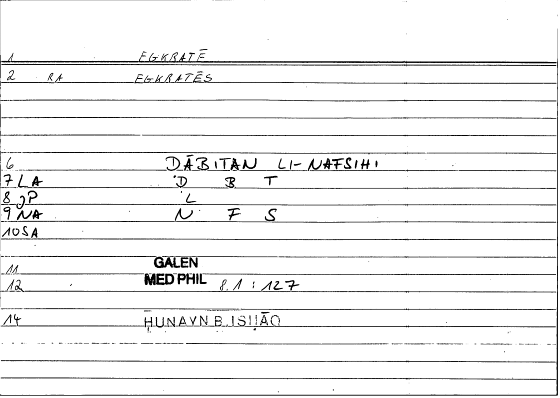 1 EGKRATĒ
2 RA EGKRATĒS
6 ḌĀBIṬAN LI-NAFSIHI
7 LA Ḍ B Ṭ
8 JP L
9 NA N F S
10 SA
11 GALEN
12 MED PHIL 8.1 : 127
14 ḤUNAYN B. ISḤĀQ